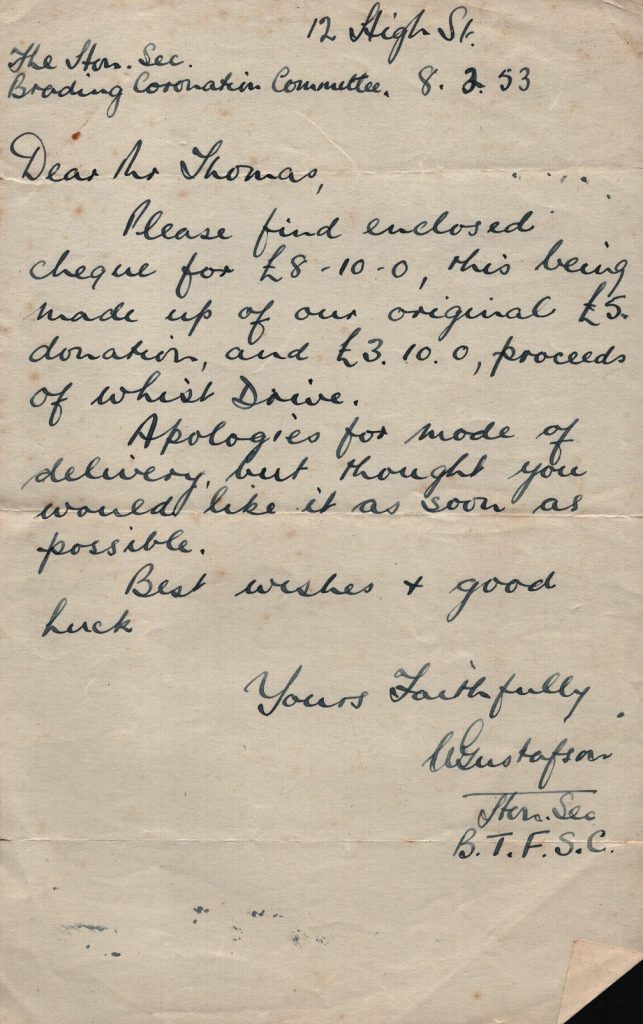 12 High St.
The Hon. Sec.
Brading Coronation Committee. 8. 2. 53
Dear Mr Thomas,
Please find enclosed
cheque for £8-10-0, this being
made up of our original £5.
donation, and £3.10.0, proceeds
of whist Drive.
Apologies for mode of
delivery, but thought you
would like it as soon as
possible.
Best wishes + good
luck
Yours Faithfully
Gustafson
Hon. Sec
B.T.F.S.C.